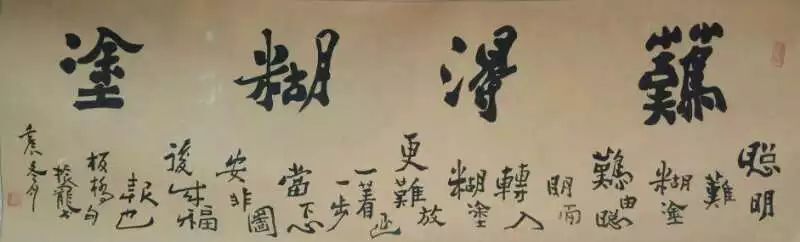 難得糊塗
聰明
難
糊塗
難由聰
明而
轉入
糊塗
更難放
一著退
一步
當下心
安非圖
後来福
報也
板橋句
振龍書